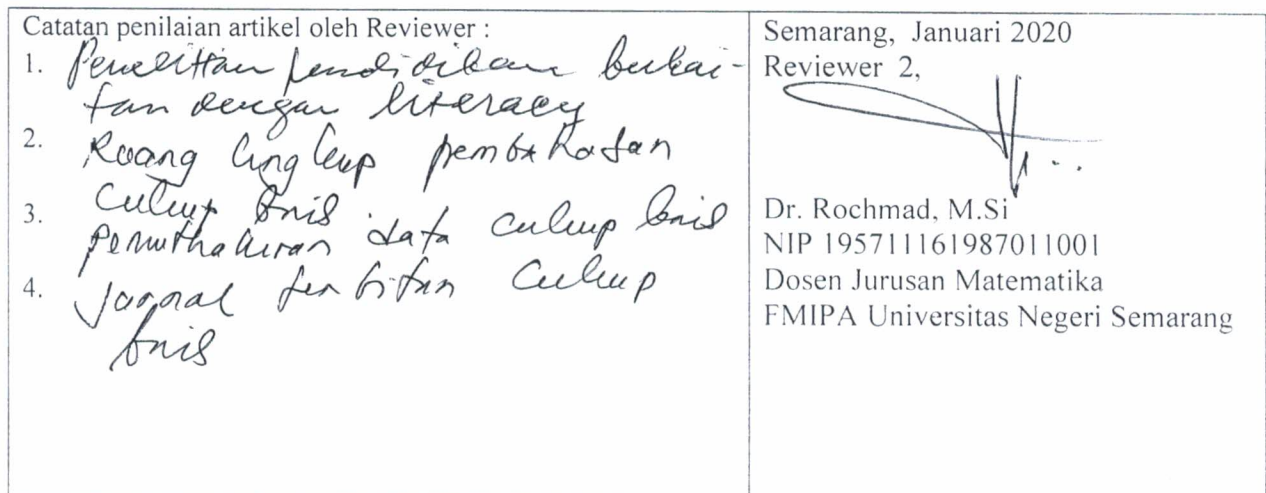 Catatan penilaian artikel oleh Reviewer :
1. Penelitian pendidikan berkai-
tan dengan literacy
2. Ruang lingkup pembahasan
cukup baik
3. Pemuthakiran data cukup baik
4. Jurnal terbitan cukup
baik
Semarang, Januari 2020
Reviewer 2,
Dr. Rochmad, M.Si
NIP 195711161987011001
Dosen Jurusan Matematika
FMIPA Universitas Negeri Semarang